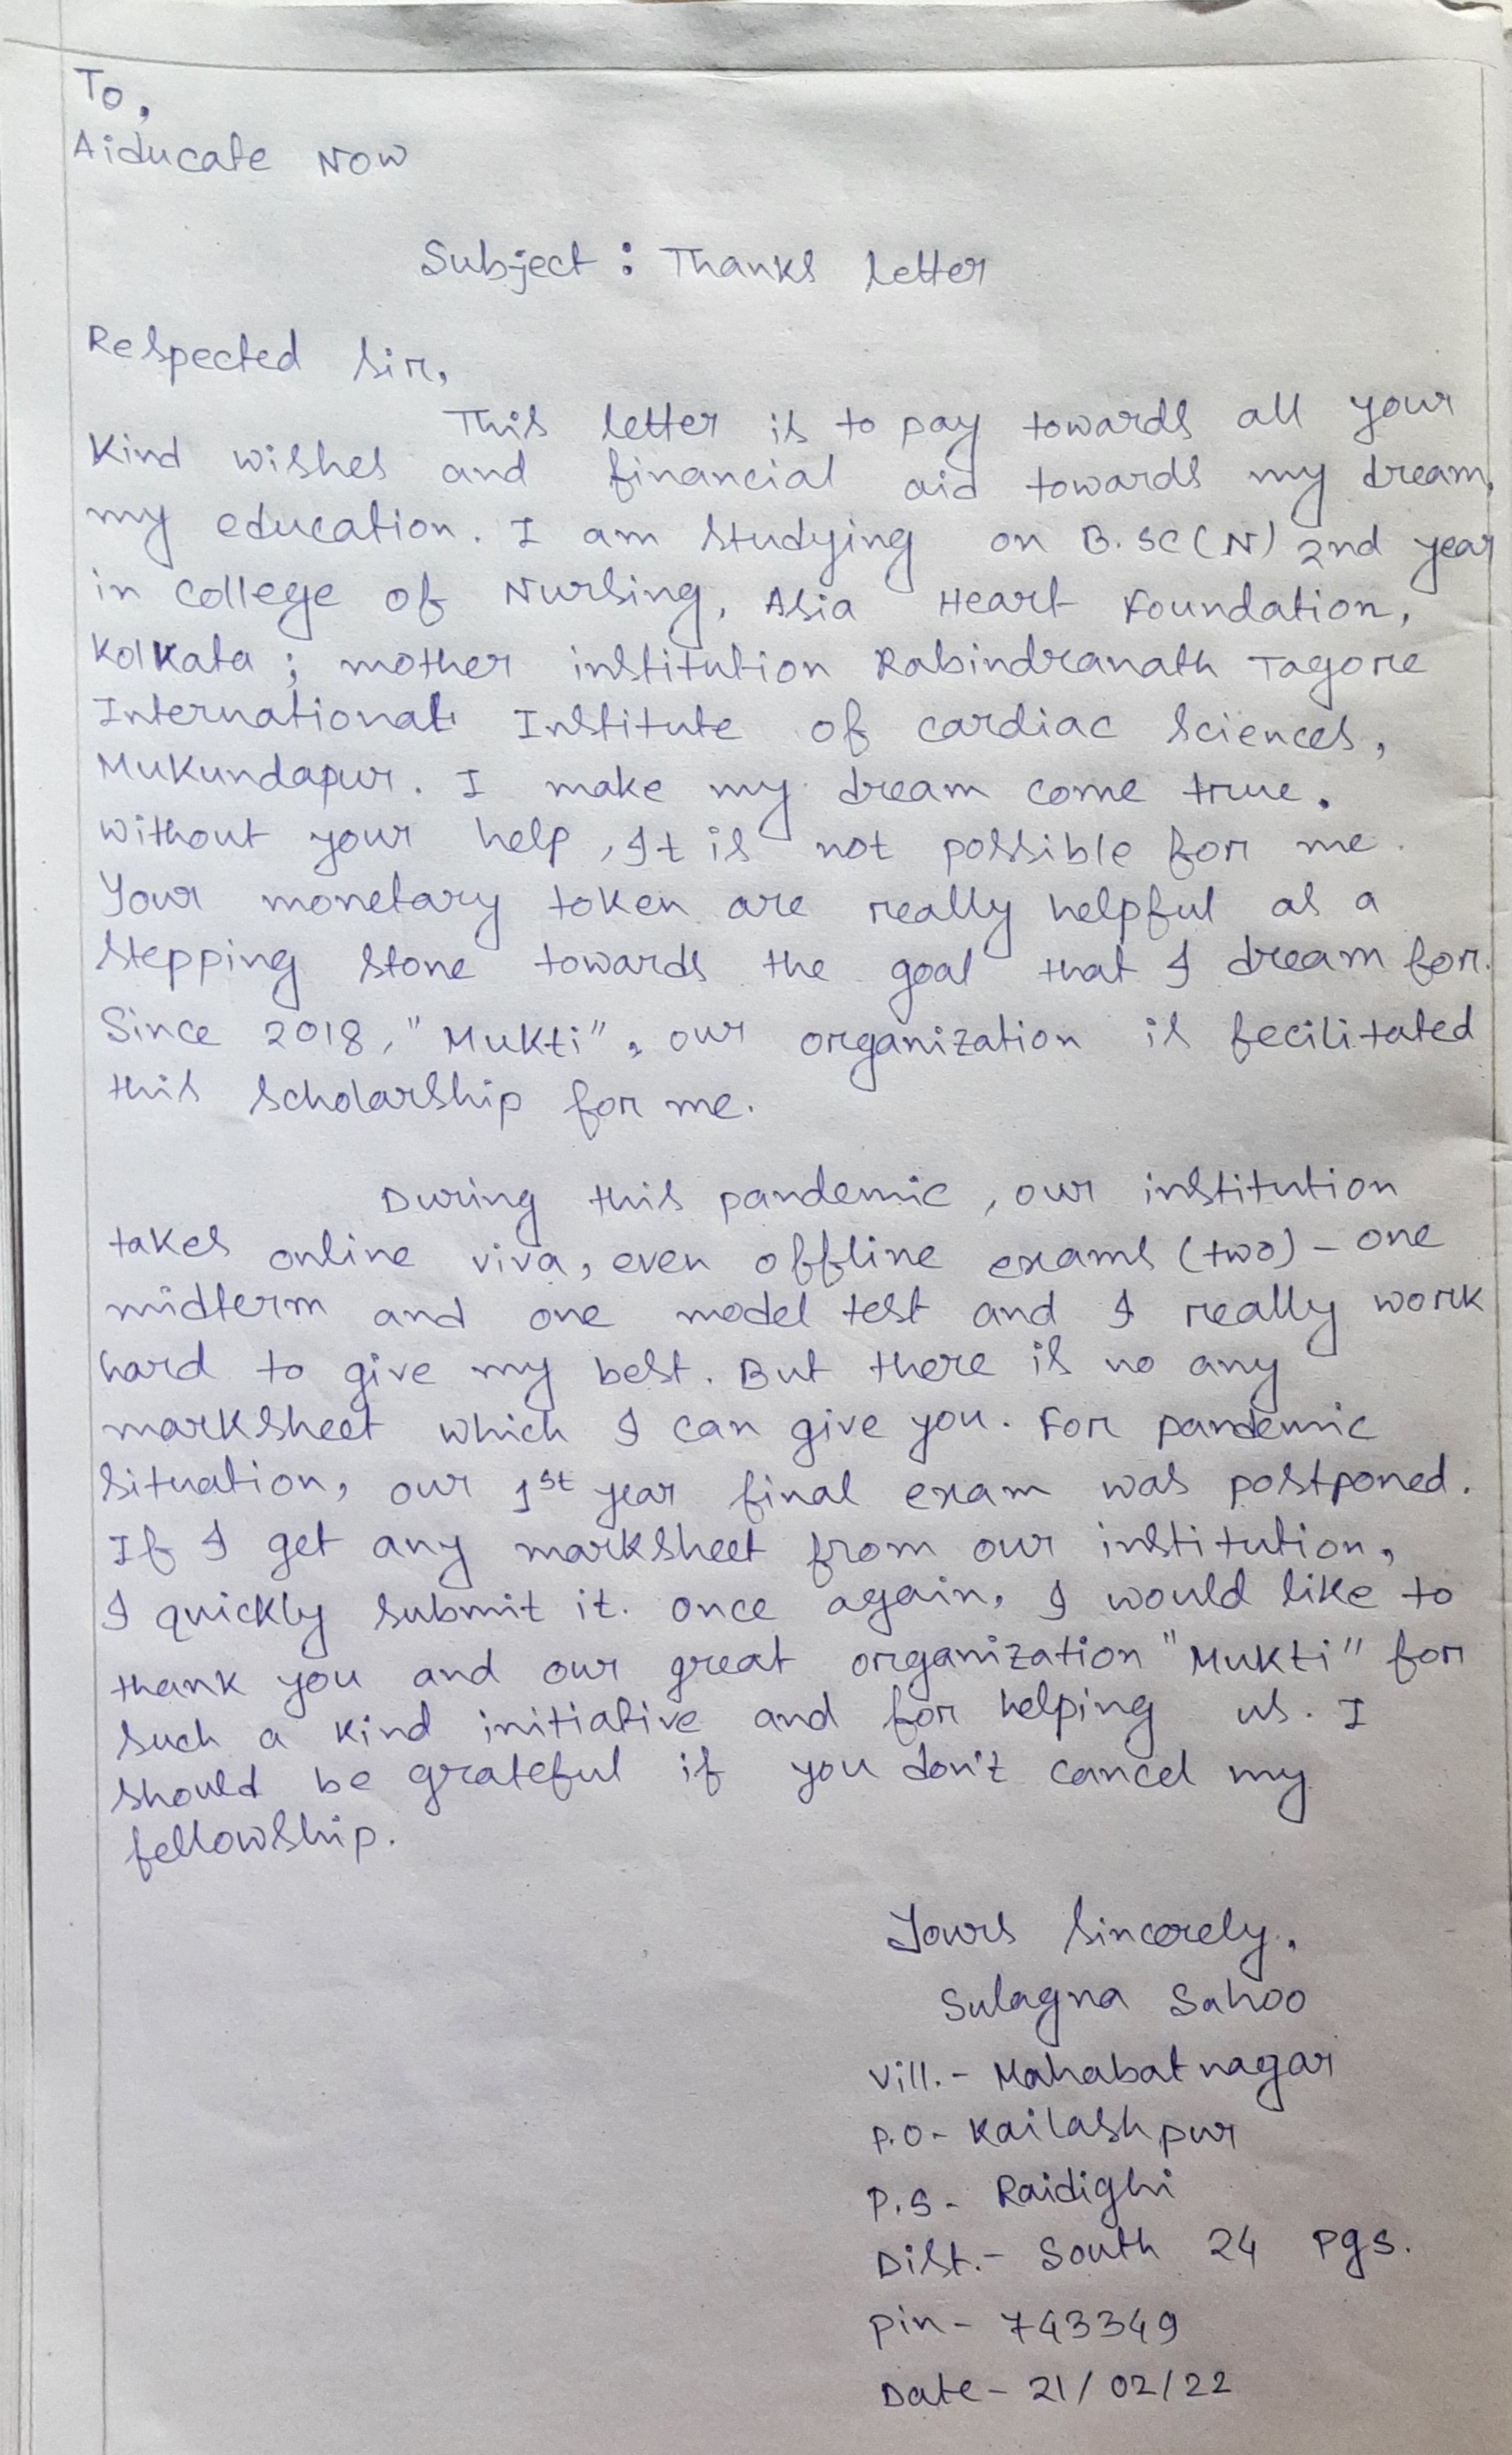 To,
Aiducate Now
Subject : Thanks letter
Respected sir,
This letter is to pay towards all your
Kind wishes and financial aid towards my dream,
my education. I am studying on B.SC(N) 2nd year
in college of Nursing, Asia Heart Foundation,
Kolkata ; mother institution Rabindranath Tagore
International Institute of cardiac sciences,
Mukundapur. I make my dream come true.
Without your help, It is not possible for me.
Your monetary token are really helpful as a
stepping stone towards the goal that I dream for.
Since 2018, "Mukti", our organization is fecilitated
this scholarship for me.
During this pandemic, our institution
takes online viva, even offline exams (two) - one
midterm and one model test and I really work
hard to give my best. But there is no any
marksheet which I can give you. For pandemic
situation, our 1st year final exam was postponed.
If I get any marksheet from our institution,
I quickly submit it. Once again, I would like to
thank you and our great organization "Mukti" for
such a kind initiative and for helping us. I
should be grateful if you don't cancel my
fellowship.
Yours sincerely,
Sulagna Sahoo
Vill.- Mahabat nagar
P.O- Kailashpur
P.S- Raidighi
Dist.- South 24 Pgs.
Pin- 743349
Date- 21/02/22